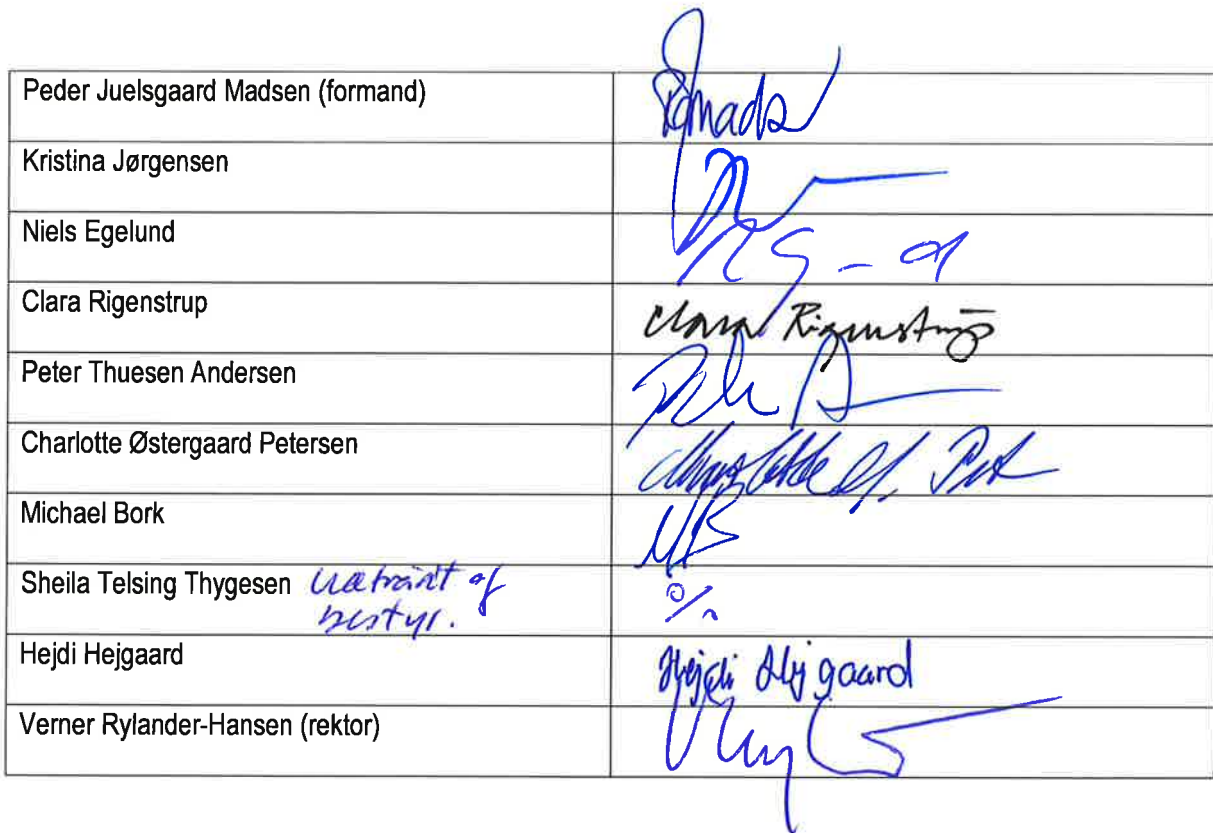 Peder Juelsgaard Madsen (formand)
Kristina Jørgensen
Niels Egelund
Clara Rigenstrup Clara Rigenstrup
Peter Thuesen Andersen
Charlotte Østergaard Petersen
Michael Bork MB
Sheila Telsing Thygesen af %
bestyr.
Hejdi Hejgaard Hejdi Hejgaard
Verner Rylander-Hansen (rektor)